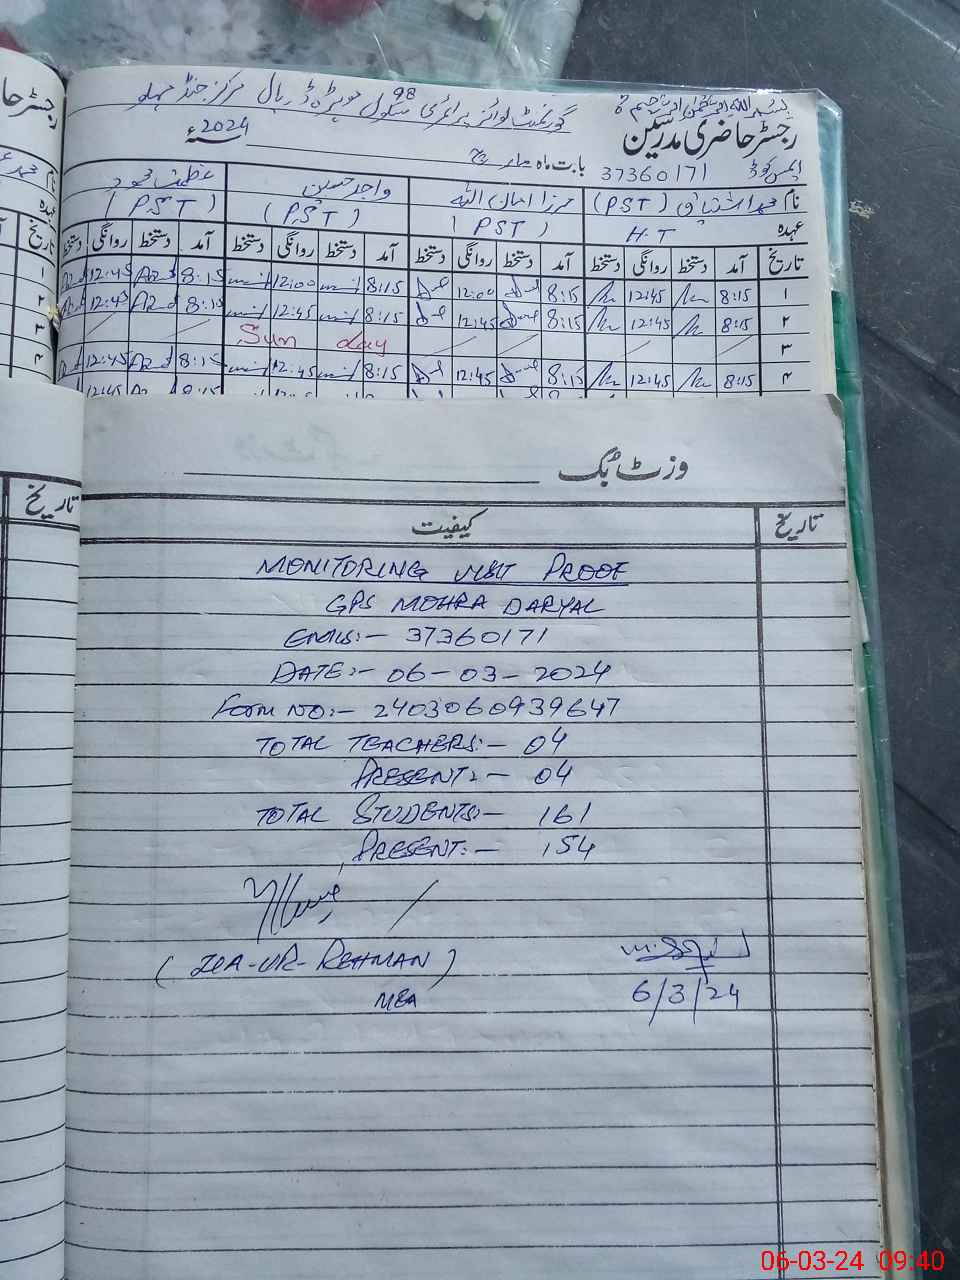 گورنمنٹ بوائز پرائمری سکول موہڑہ ڈریال مرکز جنڈ مہلو
98
رجسٹر حاضری مدرسین
بابت ماہ مارچ 2024ء
ایمس کوڈ 37360171
نام محمد اشتیاق (PST) مرزا احسان اللہ (PST) واجد حسین (P.S.T) عظمت محمود (P.S.T)
عہدہ H.T
تاریخ آمد دستخط روانگی دستخط آمد دستخط روانگی دستخط آمد دستخط روانگی دستخط آمد دستخط روانگی دستخط
۱ 8:15 12:45 8:15 12:00 8:15 12:00 8:15 12:45
۲ 8:15 12:45 8:15 12:45 8:15 12:45 8:15 12:45
۳ Sun day
۴ 8:15 12:45 8:15 12:45 8:15 12:45 8:15 12:45
وزٹ بک
تاریخ کیفیت
تاریخ
MONITORING VISIT PROOF
GPS MOHRA DARYAL
EMIS:- 37360171
DATE:- 06-03-2024
FORM NO:- 2403060939647
TOTAL TEACHERS:- 04
PRESENT:- 04
TOTAL STUDENTS:- 161
PRESENT:- 154
(ZIA-UR-REHMAN)
MEA
6/3/24
06-03-24 09:40